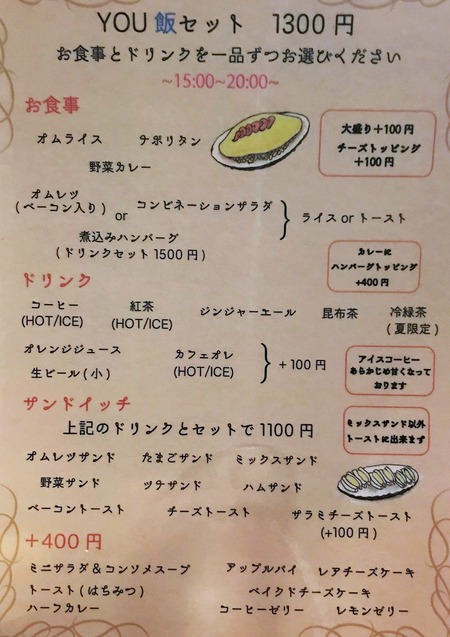 YOU飯セット 1300円
お食事とドリンクを一品ずつお選びください
〜15:00~20:00〜
お食事
オムライス ナポリタン
野菜カレー
大盛り+100円
チーズトッピング
+100円
オムレツ
(ベーコン入り) or コンビネーションサラダ
煮込みハンバーグ
(ドリンクセット1500円)
ライスorトースト
カレーに
ハンバーグトッピング
+400円
ドリンク
コーヒー
(HOT/ICE)
紅茶
(HOT/ICE)
ジンジャーエール
昆布茶
冷緑茶
(夏限定)
オレンジジュース
生ビール(小)
カフェオレ
(HOT/ICE)
+100円
アイスコーヒー
あらかじめ甘くなって
おります
サンドイッチ
上記のドリンクとセットで1100円
ミックスサンド以外
トーストに出来ます
オムレツサンド たまごサンド ミックスサンド
野菜サンド ツナサンド ハムサンド
ベーコントースト チーズトースト サラミチーズトースト
(+100円)
+400円
ミニサラダ&コンソメスープ アップルパイ レアチーズケーキ
トースト(はちみつ) ベイクドチーズケーキ
ハーフカレー コーヒーゼリー レモンゼリー